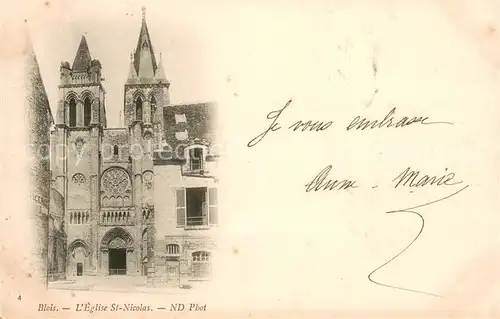 Je vous embrasse
Anne - Marie
4
Blois. — L'Église St-Nicolas. — ND Phot